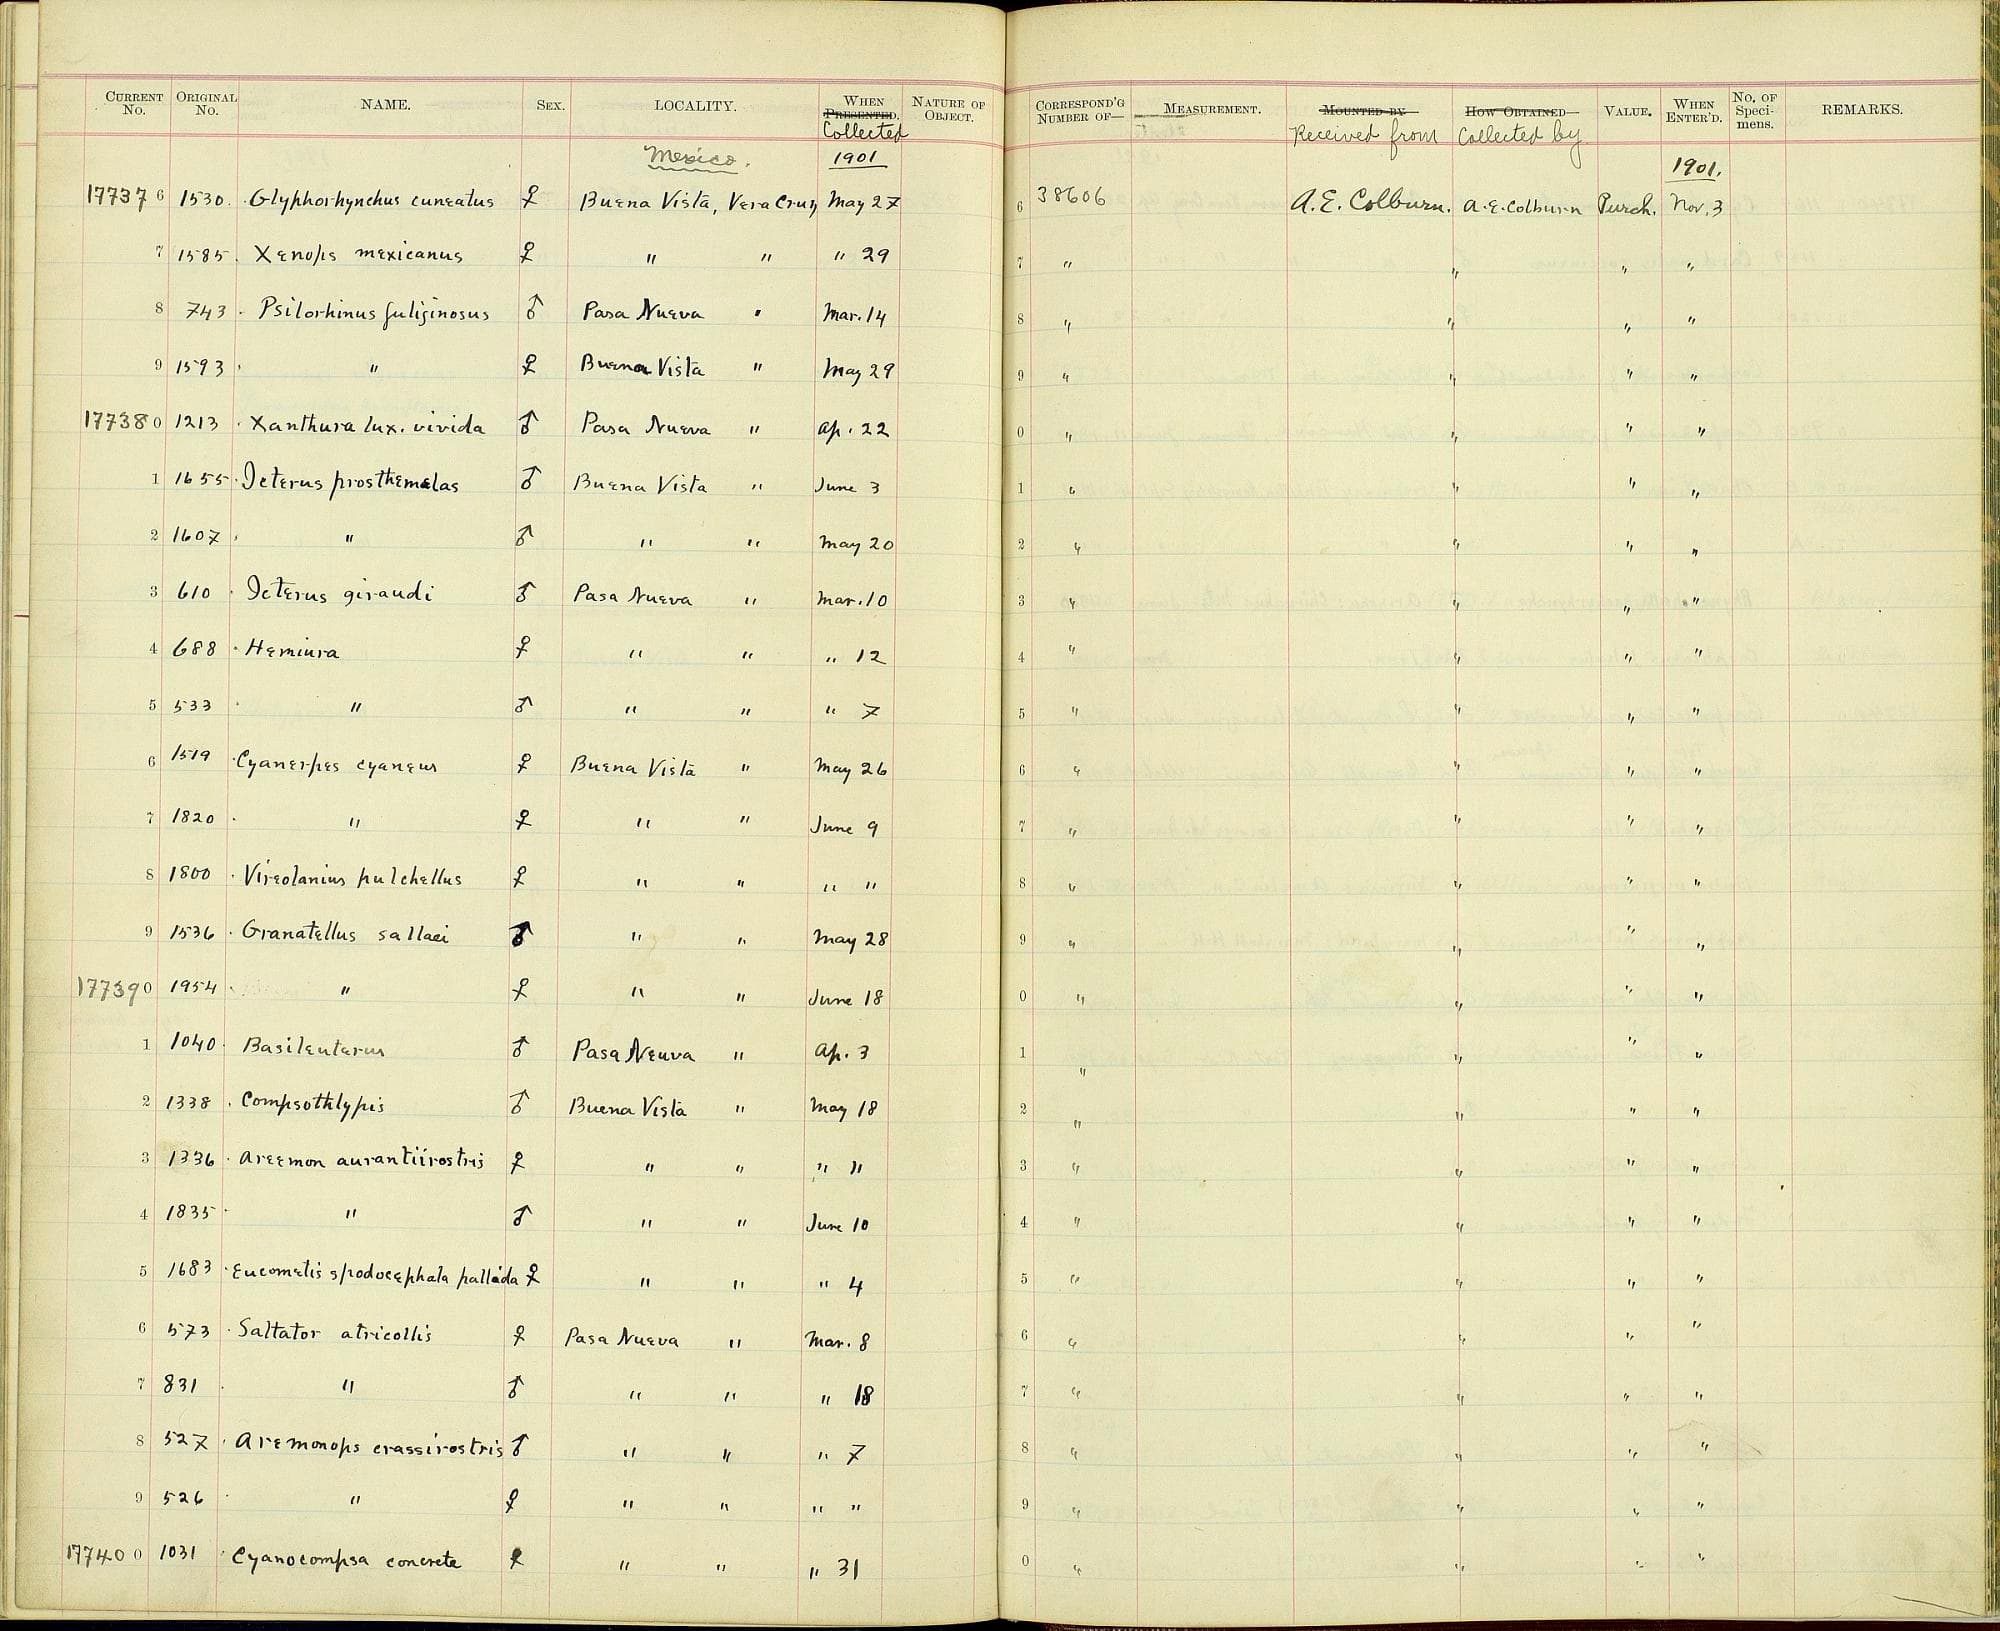 CURRENT No. ORIGINAL No. NAME. SEX. LOCALITY. WHEN PRESENTED. Collected NATURE OF OBJECT. CORRESPOND'G NUMBER OF— MEASUREMENT. MOUNTED BY Received from HOW OBTAINED Collected by VALUE. WHEN ENTER'D. No. OF Speci-mens. REMARKS.
Mexico. 1901 1901.
17737 6 1530. Glyphorhynchus cuneatus ♀ Buena Vista, Vera Cruz May 27 6 38606 A.E. Colburn. A.E. Colburn Purch. Nov. 3
7 1585. Xenops mexicanus ♀ " " " 29 7 " " " "
8 743. Psilorhinus fuliginosus ♂ Pasa Nueva " Mar. 14 8 " " " "
9 1593. " ♀ Buena Vista " May 29 9 " " " "
17738 0 1213. Xanthura lux. vivida ♂ Pasa Nueva " Ap. 22 0 " " " "
1 1655. Icterus prosthemelas ♂ Buena Vista " June 3 1 " " " "
2 1607. " ♂ " " May 20 2 " " " "
3 610. Icterus giraudi ♂ Pasa Nueva " Mar. 10 3 " " " "
4 688. Hemiura ♀ " " " 12 4 " " " "
5 533. " ♂ " " " 7 5 " " " "
6 1519. Cyanerpes cyaneus ♀ Buena Vista " May 26 6 " " " "
7 1820. " ♀ " " June 9 7 " " " "
8 1800. Vireolanius pulchellus ♀ " " " " 8 " " " "
9 1536. Granatellus sallaei ♂ " " May 28 9 " " " "
17739 0 1954. " ♀ " " June 18 0 " " " "
1 1040. Basileuterus ♂ Pasa Neuva " Ap. 3 1 " " " "
2 1338. Compsothlypis ♂ Buena Vista " May 18 2 " " " "
3 1336. Areemon aurantiirostris ♀ " " " " 3 " " " "
4 1835. " ♂ " " June 10 4 " " " "
5 1683. Eucometis spodocephala pallida ♀ " " " 4 5 " " " "
6 573. Saltator atricollis ♀ Pasa Nueva " Mar. 8 6 " " " "
7 831. " ♂ " " " 18 7 " " " "
8 527. Aremonops crassirostris ♂ " " " 7 8 " " " "
9 526. " ♀ " " " " 9 " " " "
17740 0 1031. Cyanocompsa concreta ♀ " " " 31 0 " " " "